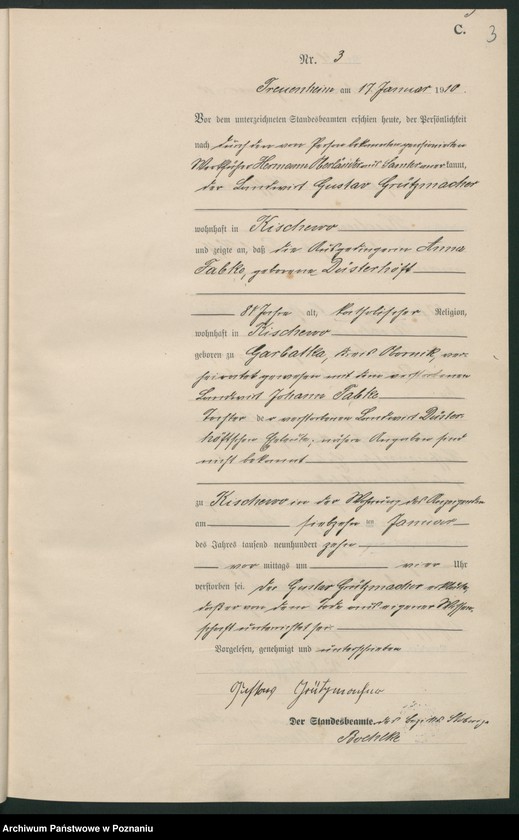 C.
3
Nr. 3
Treuenheim am 17 Januar 1910.
Vor dem unterzeichneten Standesbeamten erschien heute, der Persönlichkeit
nach durch den von Person bekannten pensionierten
Werkführer Hermann Oberländer aus Samter anerkannt,
der Landwirt Gustav Grützmacher
wohnhaft in Kischewo
und zeigte an, daß die Ausgedingerin Anna
Tabke, geborene Düsterhöft
81 Jahre alt, katholischer Religion,
wohnhaft in Kischewo
geboren zu Garbatka, Kreis Obornik, ver-
heiratet gewesen mit dem verstorbenen
Landwirt Johann Tabke
Tochter der verstorbenen Landwirt Düster-
höftschen Eheleute, nähere Angaben sind
nicht bekannt
zu Kischewo in der Wohnung des Anzeigenden
am siebzehn ten Januar
des Jahres tausend neunhundert zehn
vor mittags um vier Uhr
verstorben sei. Der Gustav Grützmacher erklärte,
daß er von dem Tode aus eigener Wissen-
schaft unterrichtet sei.
Vorgelesen, genehmigt und unterschrieben
Gustav Grützmacher
Der Standesbeamte.
Boehlke
Archiwum Państwowe w Poznaniu